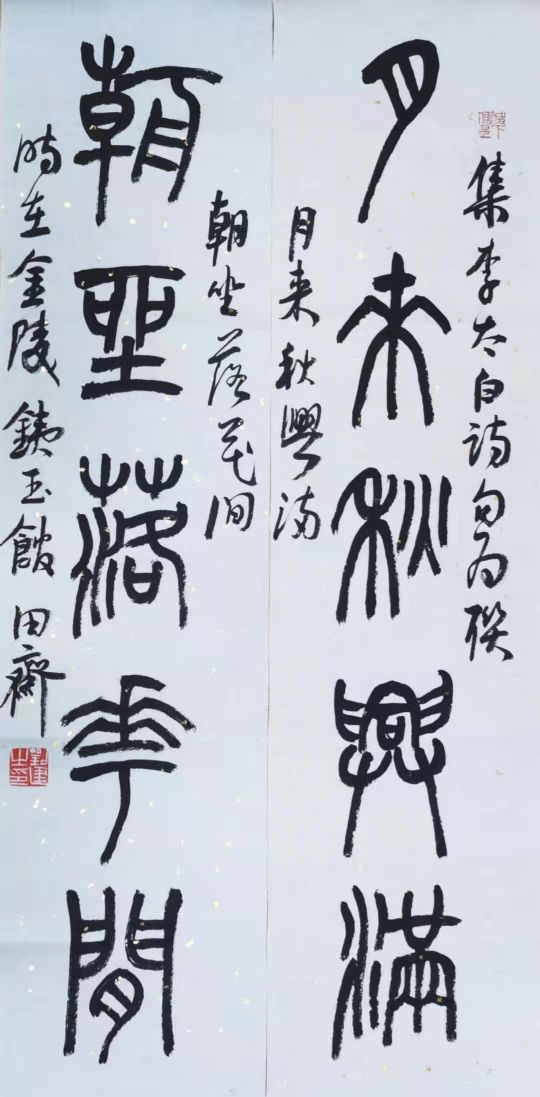 集李太白詩句为联
月來秋興滿
月来秋興满
朝坐落花间
朝坐落花間
时在金陵銕玉館田齋